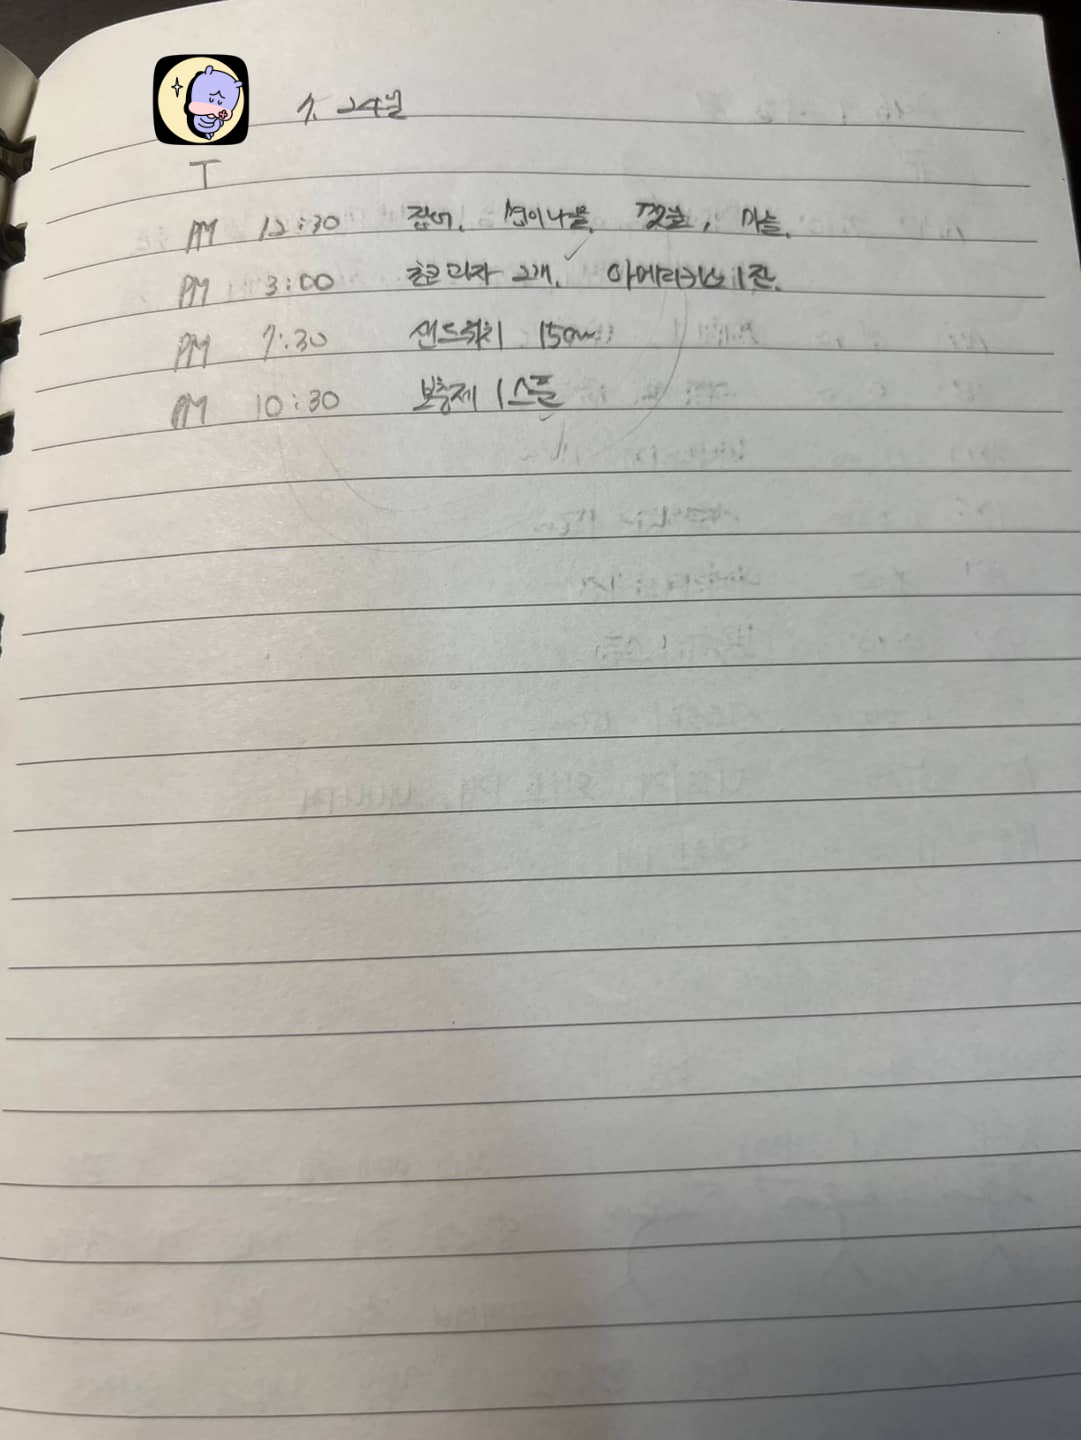 7. 24일
T
PM 12:30 잡어. 나물, 깻잎, 마늘.
PM 3:00 초코과자 2개. 아메리카노 1잔.
PM 7:30 샌드위치 15cm
PM 10:30 보충제 1스푼